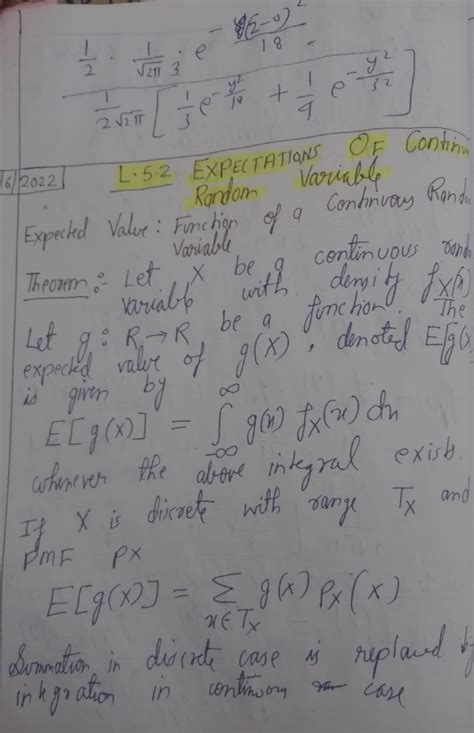 1/2 · 1/√2π 3 · e^-(2-0)²/18
1/2√2π [ 1/3 e^-y²/18 + 1/4 e^-y²/32 ]
6/2022 L.5.2 EXPECTATIONS OF Continu
Random Variable
Expected Value: Function of a Continuous Rando
Variable
Theorem:- Let X be a continuous rand
variable with density f_X(x)
Let g: R→R be a function. The
expected value of g(X), denoted E[g(x
is given by
E[g(X)] = ∫_-∞^∞ g(x) f_X(x) dx
whenever the above integral exists.
If X is discrete with range T_X and
PMF p_X
E[g(X)] = Σ_{x∈T_X} g(x) p_X(x)
Summation in discrete case is replaced by
integration in continuous case